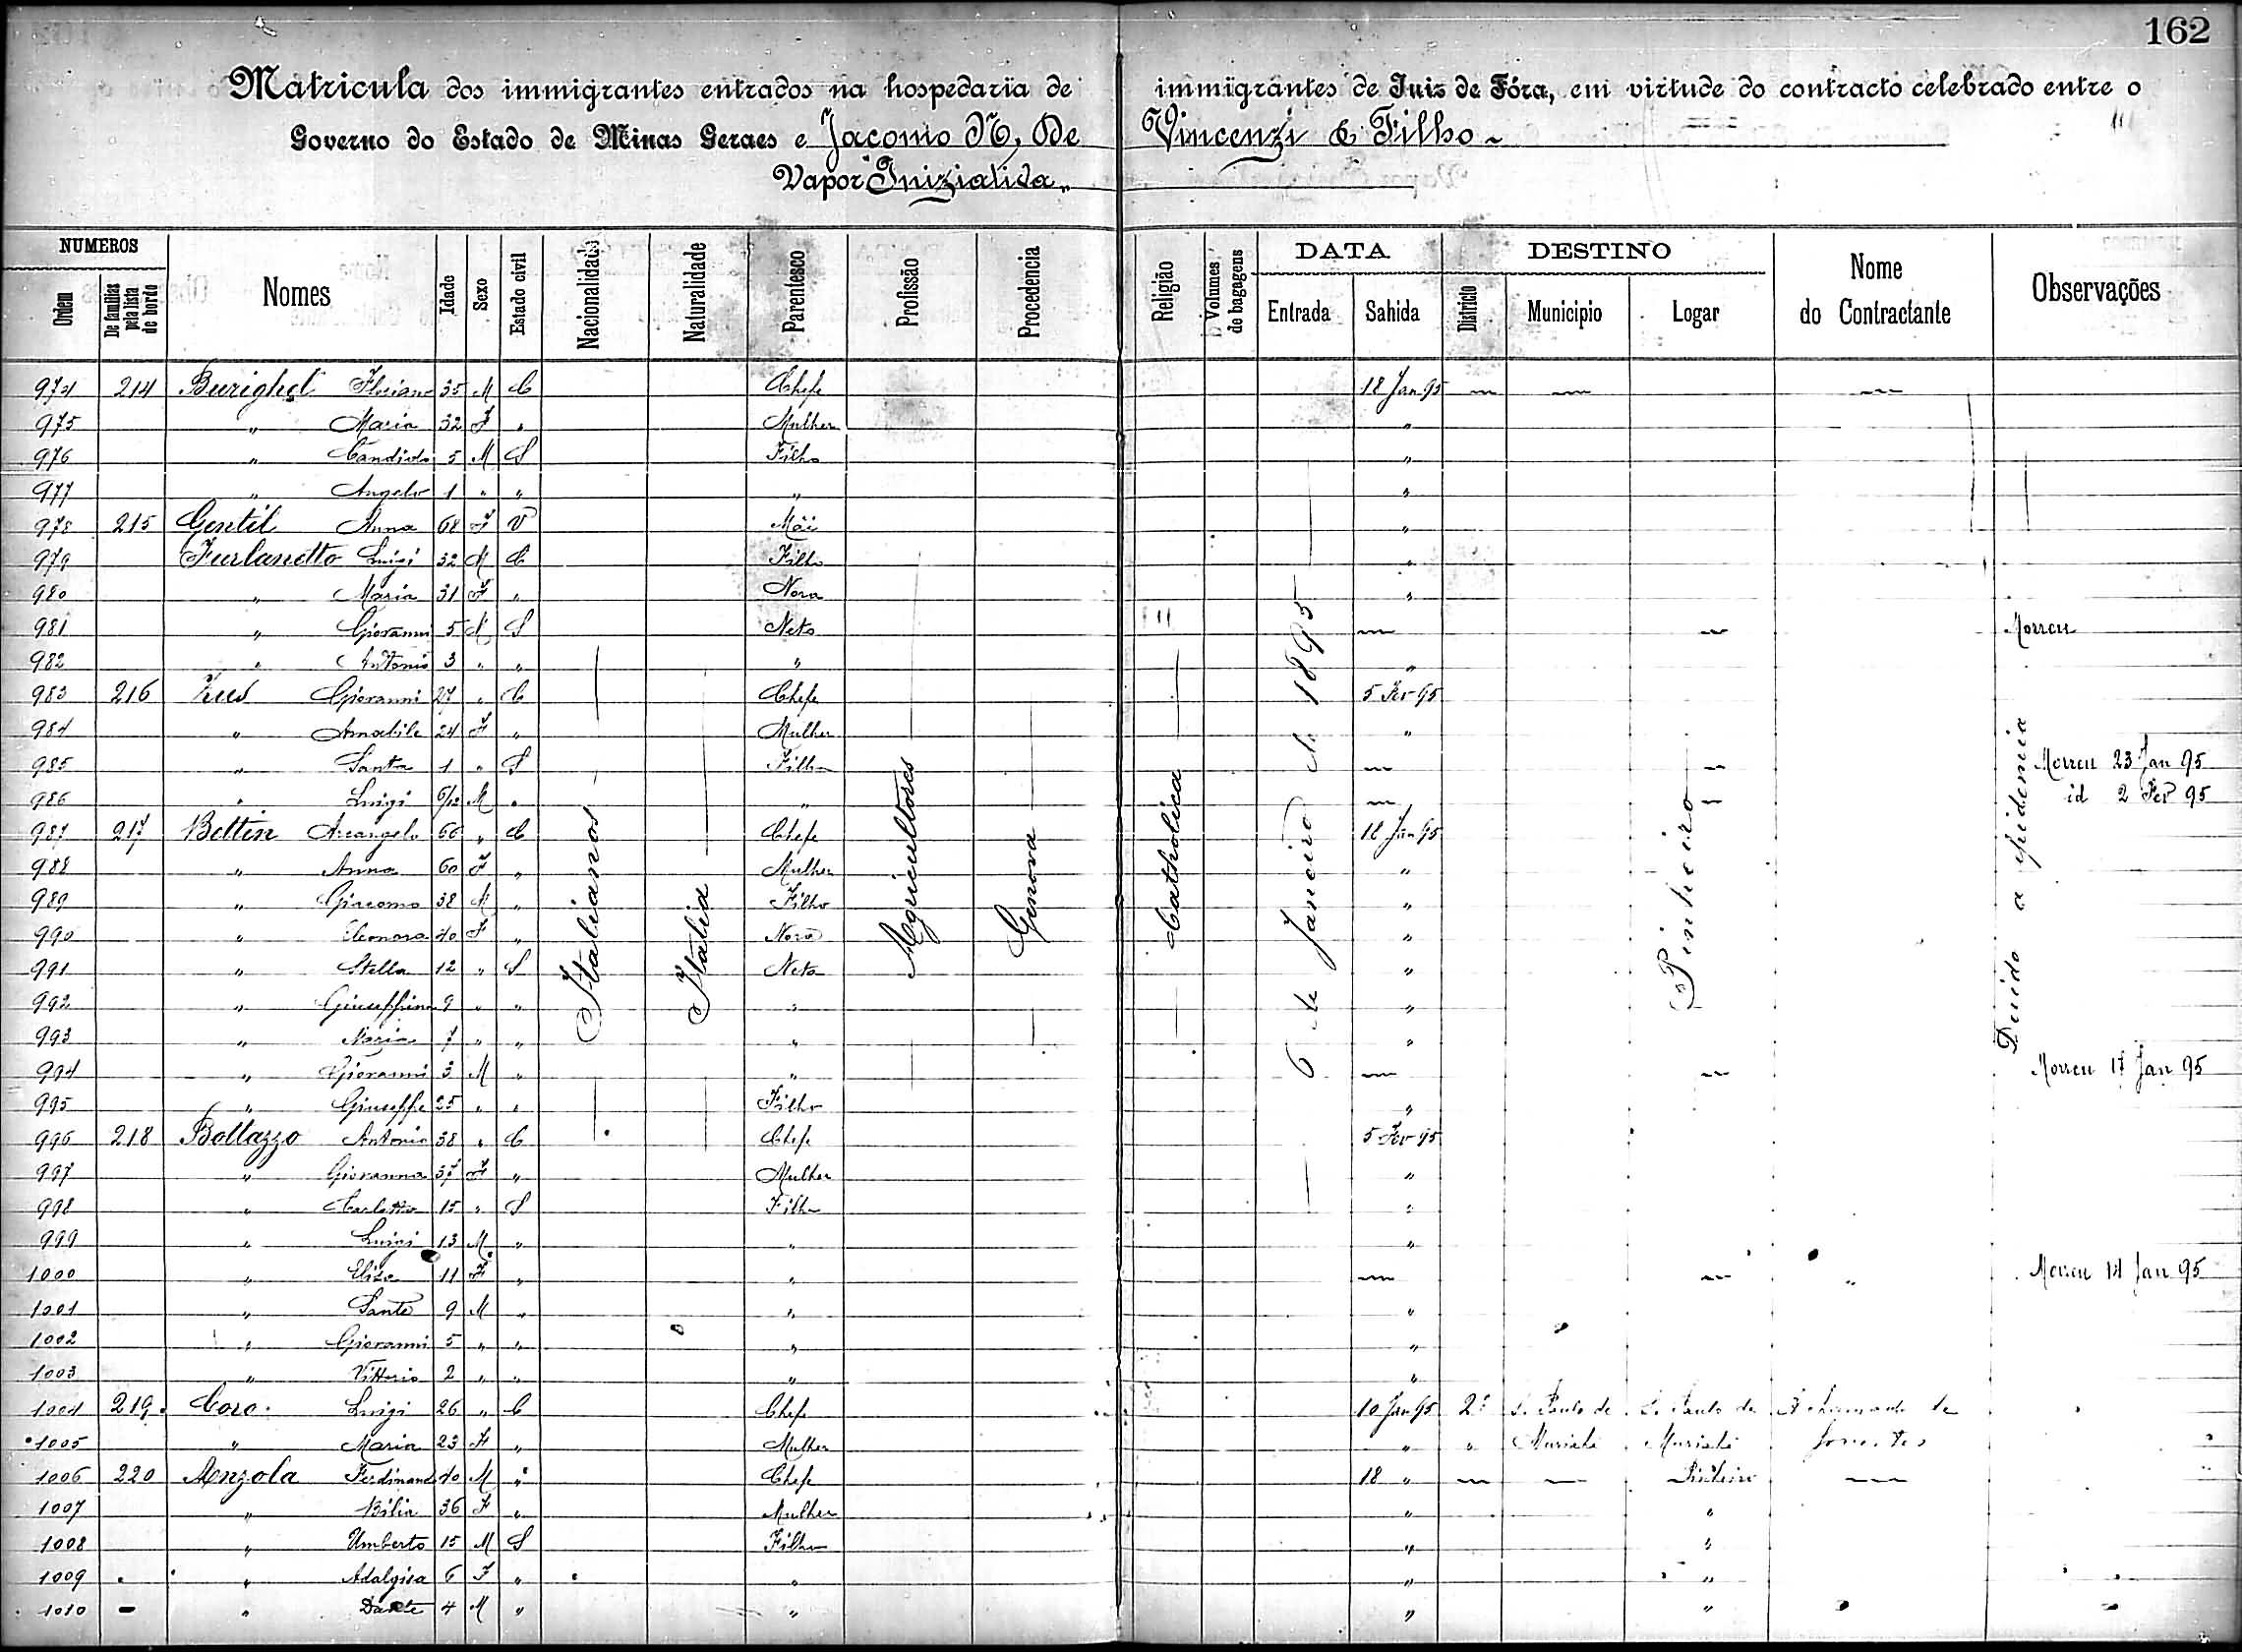 162
Matricula dos immigrantes entrados na hospedaria de immigrantes de Juiz de Fóra, em virtude do contracto celebrado entre o
Governo do Estado de Minas Geraes e Jacomo N. De Vincenzi & Filho
Vapor "Iniziativa"
NUMEROS DATA DESTINO
Ordem De familias pela lista de bordo Nomes Idade Sexo Estado civil Nacionalidade Naturalidade Parentesco Profissão Procedencia Religião Volumes de bagagens Entrada Sahida Districto Municipio Logar Nome do Contractante Observações
974 214 Burighel Floriano 35 M C Chefe 18 Jan 95 — — —
975 " Maria 32 F " Mulher "
976 " Candido 5 M S Filho "
977 " Angelo 1 " " " "
978 215 Gentil Anna 68 F V Mãi "
979 Furlanetto Luigi 32 M C Filho "
980 " Maria 31 F " Nora "
981 " Giovanni 5 M S Neto — — Morreu
982 " Antonio 3 " " " "
983 216 Giovanni 27 " C Chefe 5 Fev 95
984 " Amabile 24 F " Mulher "
985 " Santa 1 " S Filha — — Morreu 23 Jan 95
986 " Luigi 6/12 M " " — — id 2 Fev 95
987 217 Bettin Arcangelo 66 " C Chefe 18 Jan 95
988 " Anna 60 F " Mulher "
989 " Giacomo 38 M " Filho "
990 " Eleonora 40 F " Nora "
991 " Stella 12 " S Neta "
992 " Giuseppina 9 " " " "
993 " Maria 7 " " " "
994 " Giovanni 3 M " " — — Morreu 17 Jan 95
995 " Giuseppe 25 " " Filho "
996 218 Bottazzo Antonio 38 " C Chefe 5 Fev 95
997 " Giovanna 37 F " Mulher "
998 " Carlotta 15 " S Filha "
999 " Luigi 13 M " " "
1000 " Elisa 11 F " " — — " Morreu 14 Jan 95
1001 " Sante 9 M " " "
1002 " Giovanni 5 " " " "
1003 " Vittorio 2 " " " "
1004 219 Coro Luigi 26 " C Chefe 10 Jan 95 2º S. Paulo de S. Paulo de A chamado de
1005 " Maria 23 F " Mulher " " Muriahé Muriahé
1006 220 Menzola Ferdinando 40 M " Chefe 18 " — — Pinheiro —
1007 " 36 F " Mulher " "
1008 " Umberto 15 M S Filho " "
1009 " Adalgisa 6 F " " " "
1010 — " Dante 4 M " " " "
Italianos
Italia
Agricultores
Genova
Catholica
6 de Janeiro de 1895
Pinheiro
Devido a epidemia